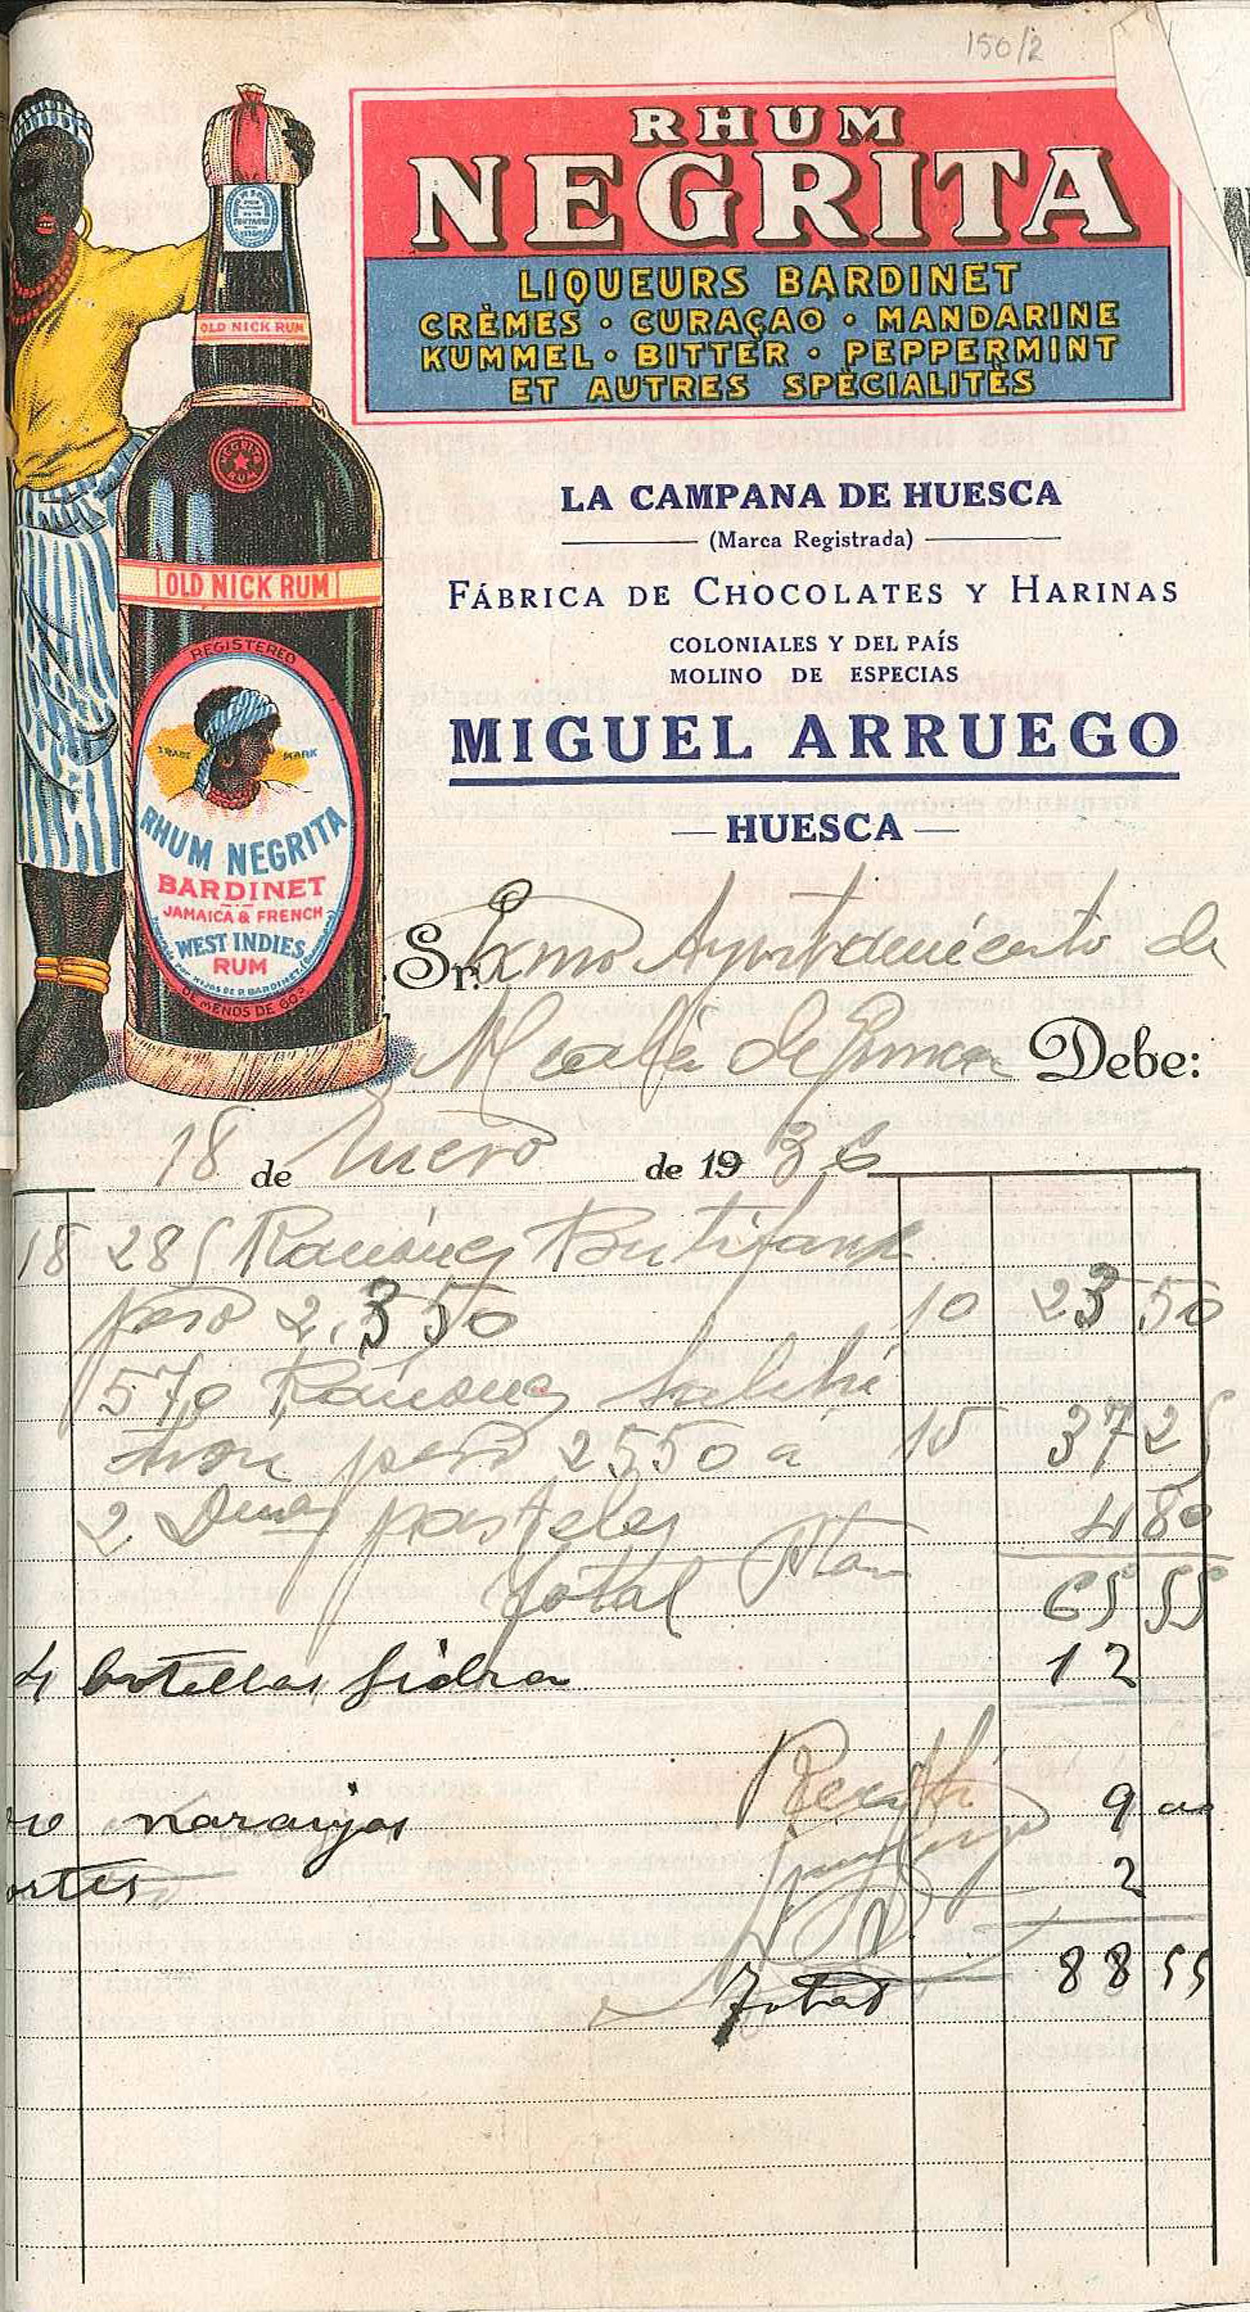 150/2
RHUM
NEGRITA
LIQUEURS BARDINET
CRÈMES • CURAÇAO • MANDARINE
KUMMEL • BITTER • PEPPERMINT
ET AUTRES SPÉCIALITÉS
OLD NICK RUM
NEGRITA
RUM
OLD NICK RUM
REGISTERED
TRADE MARK
RHUM NEGRITA
BARDINET
JAMAICA & FRENCH
WEST INDIES
RUM
DE MENOS DE 60º
LA CAMPANA DE HUESCA
(Marca Registrada)
FÁBRICA DE CHOCOLATES Y HARINAS
COLONIALES Y DEL PAÍS
MOLINO DE ESPECIAS
MIGUEL ARRUEGO
— HUESCA —
Sr. Exmo Ayuntamiento de
Alcalá de Gurrea Debe:
18 de Enero de 1936
18 28 Raciones Butifarra
peso 2,350 10 23 50
570 Raciones Salchi
chon peso 2550 a 15 37 25
2 Dnas pasteles 4 80
Total Ptas 65 55
4 botellas Sidra 12
naranjas 9
Recibí
ortes 2
Total 88 55